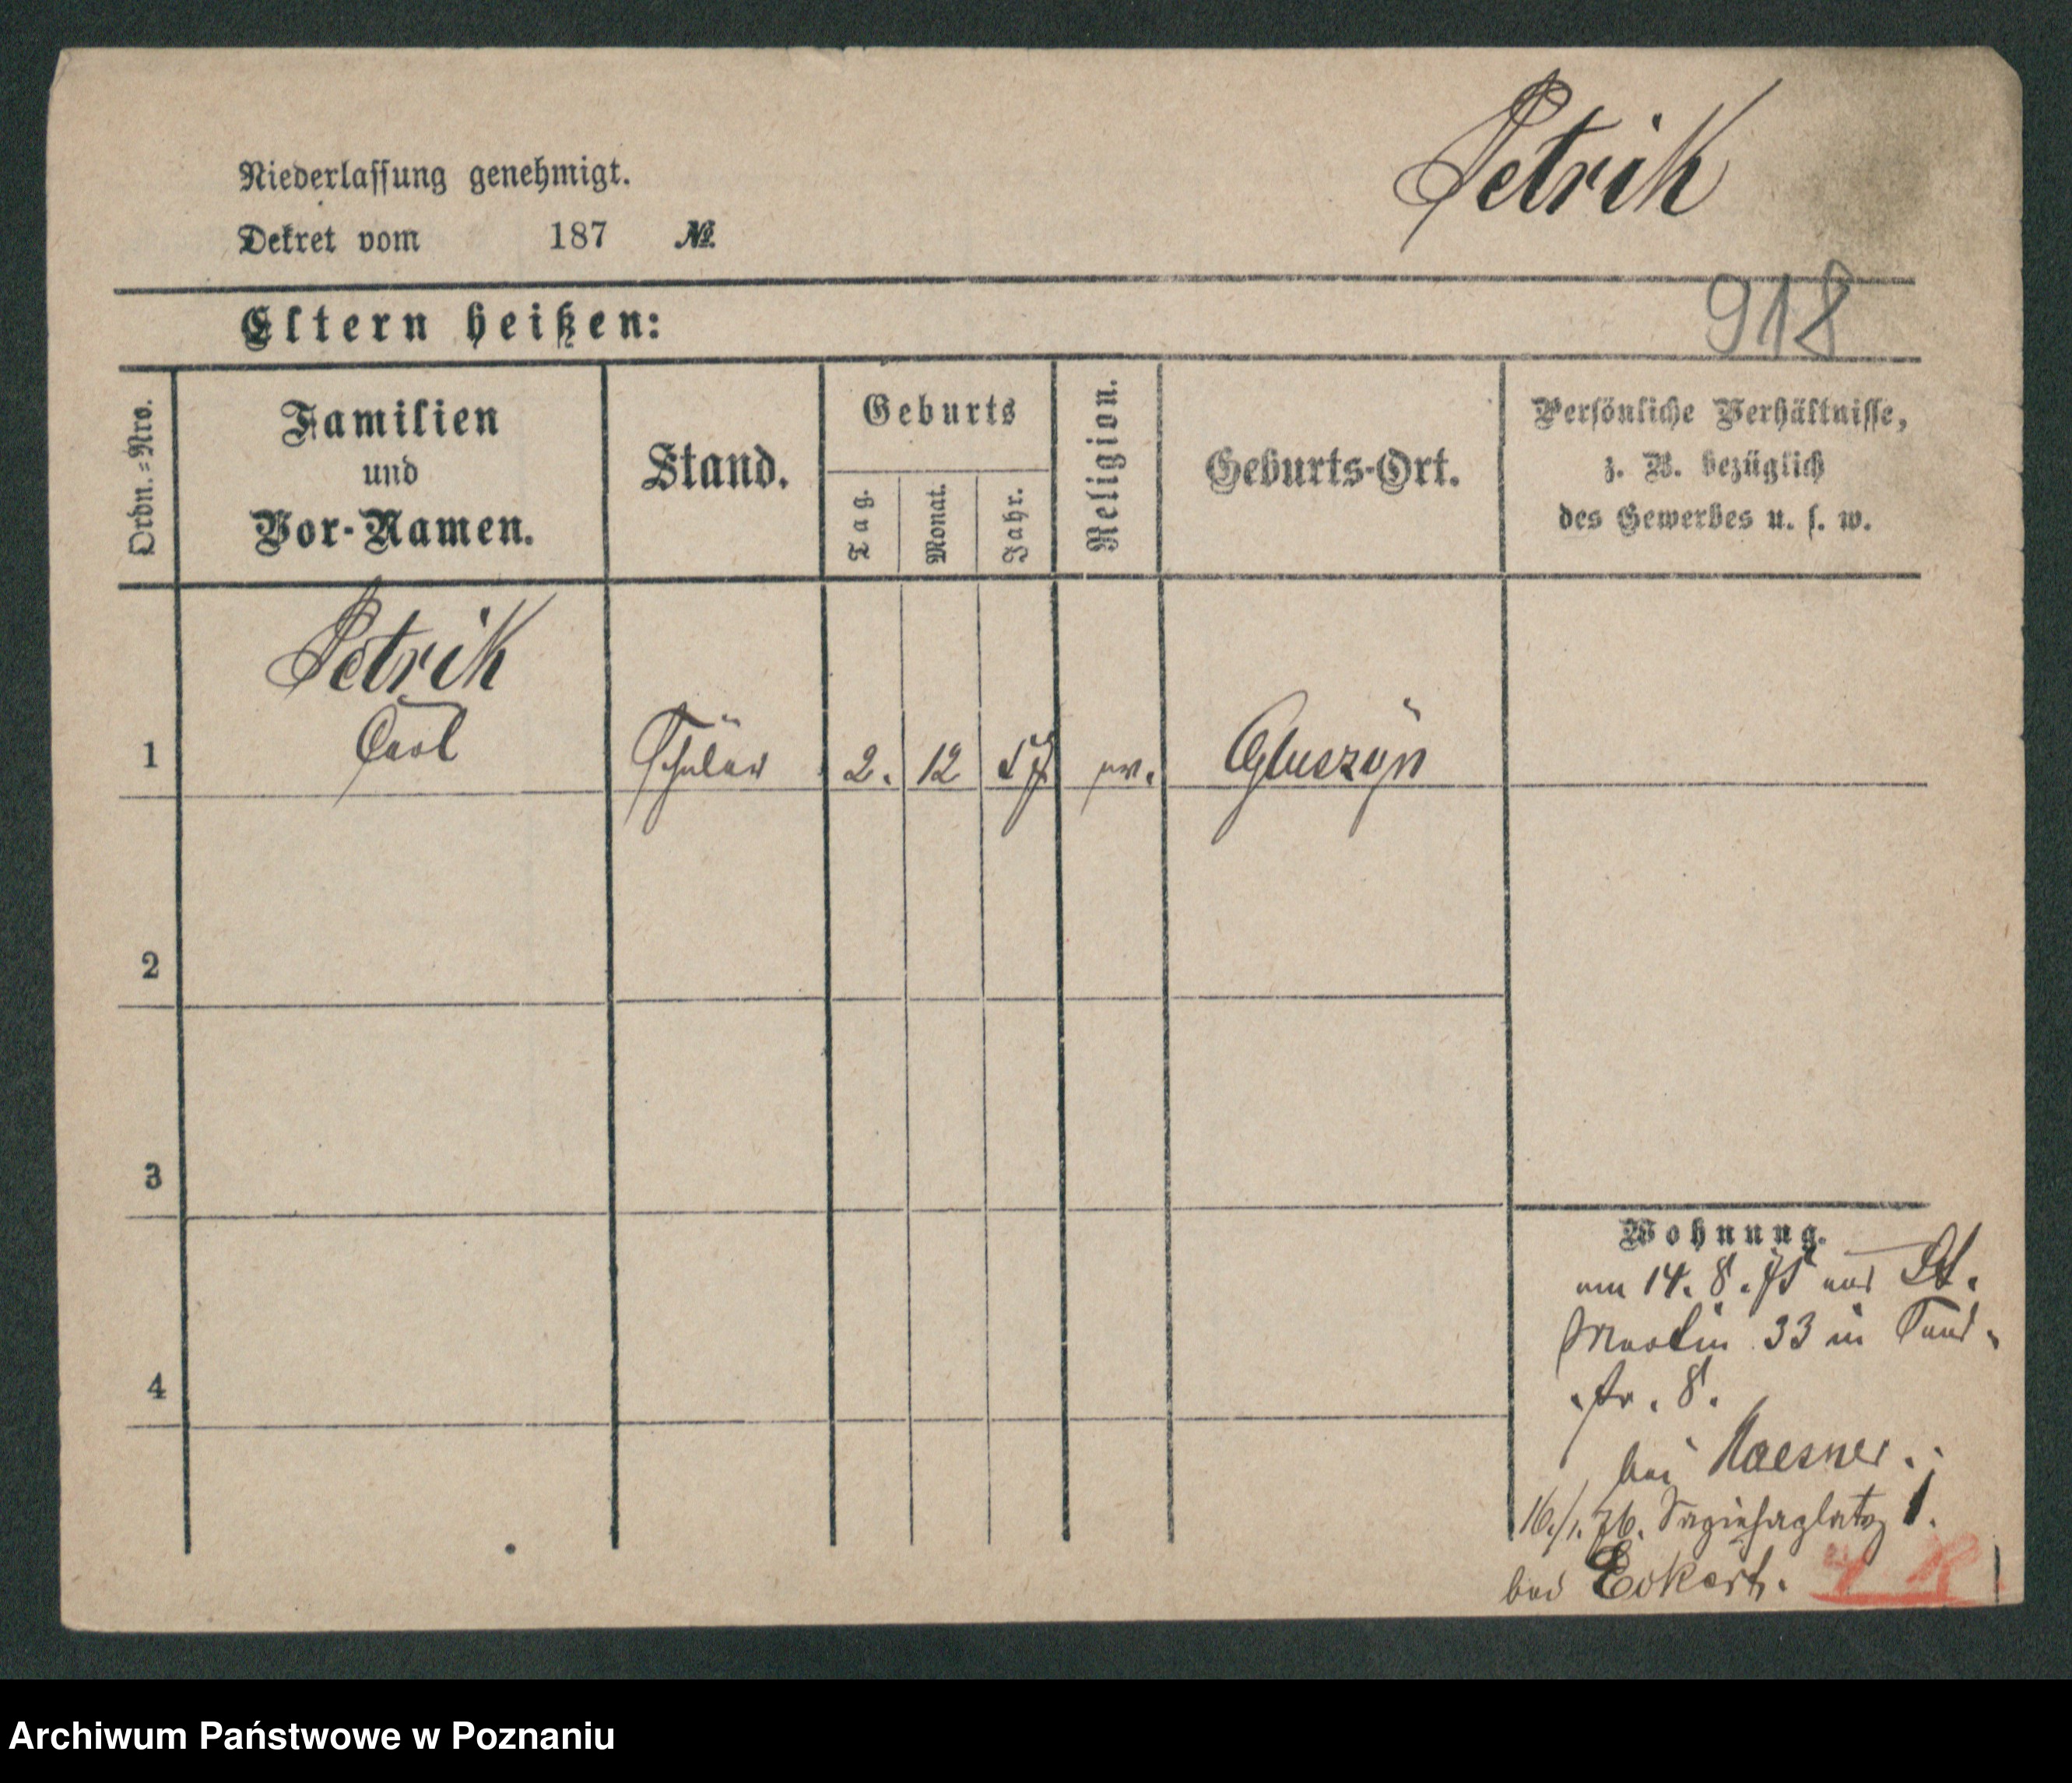 Petrik
Niederlassung genehmigt.
Dekret vom 187 №
918
Eltern heißen:
Ordn.=Nro.
Familien
und
Vor-Namen.
Stand.
Geburts
Tag.
Monat.
Jahr.
Religion.
Geburts-Ort.
Persönliche Verhältnisse,
z. B. bezüglich
des Gewerbes u. s. w.
Petrik
1 Carl Schüler 2. 12 57 ev. Gluszyn
2
3
4
Wohnung.
am 14. 8. 75 aus St.
Martin 33 in
str. 8.
bei Maesner.
16./1. 76. Sapiehaplatz 1.
bei Eckert.
Archiwum Państwowe w Poznaniu